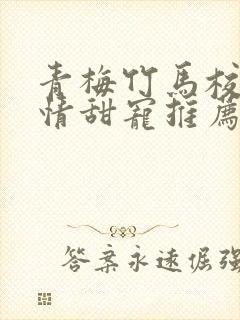 青梅竹馬校
情甜寵推薦
答案永遠倔強